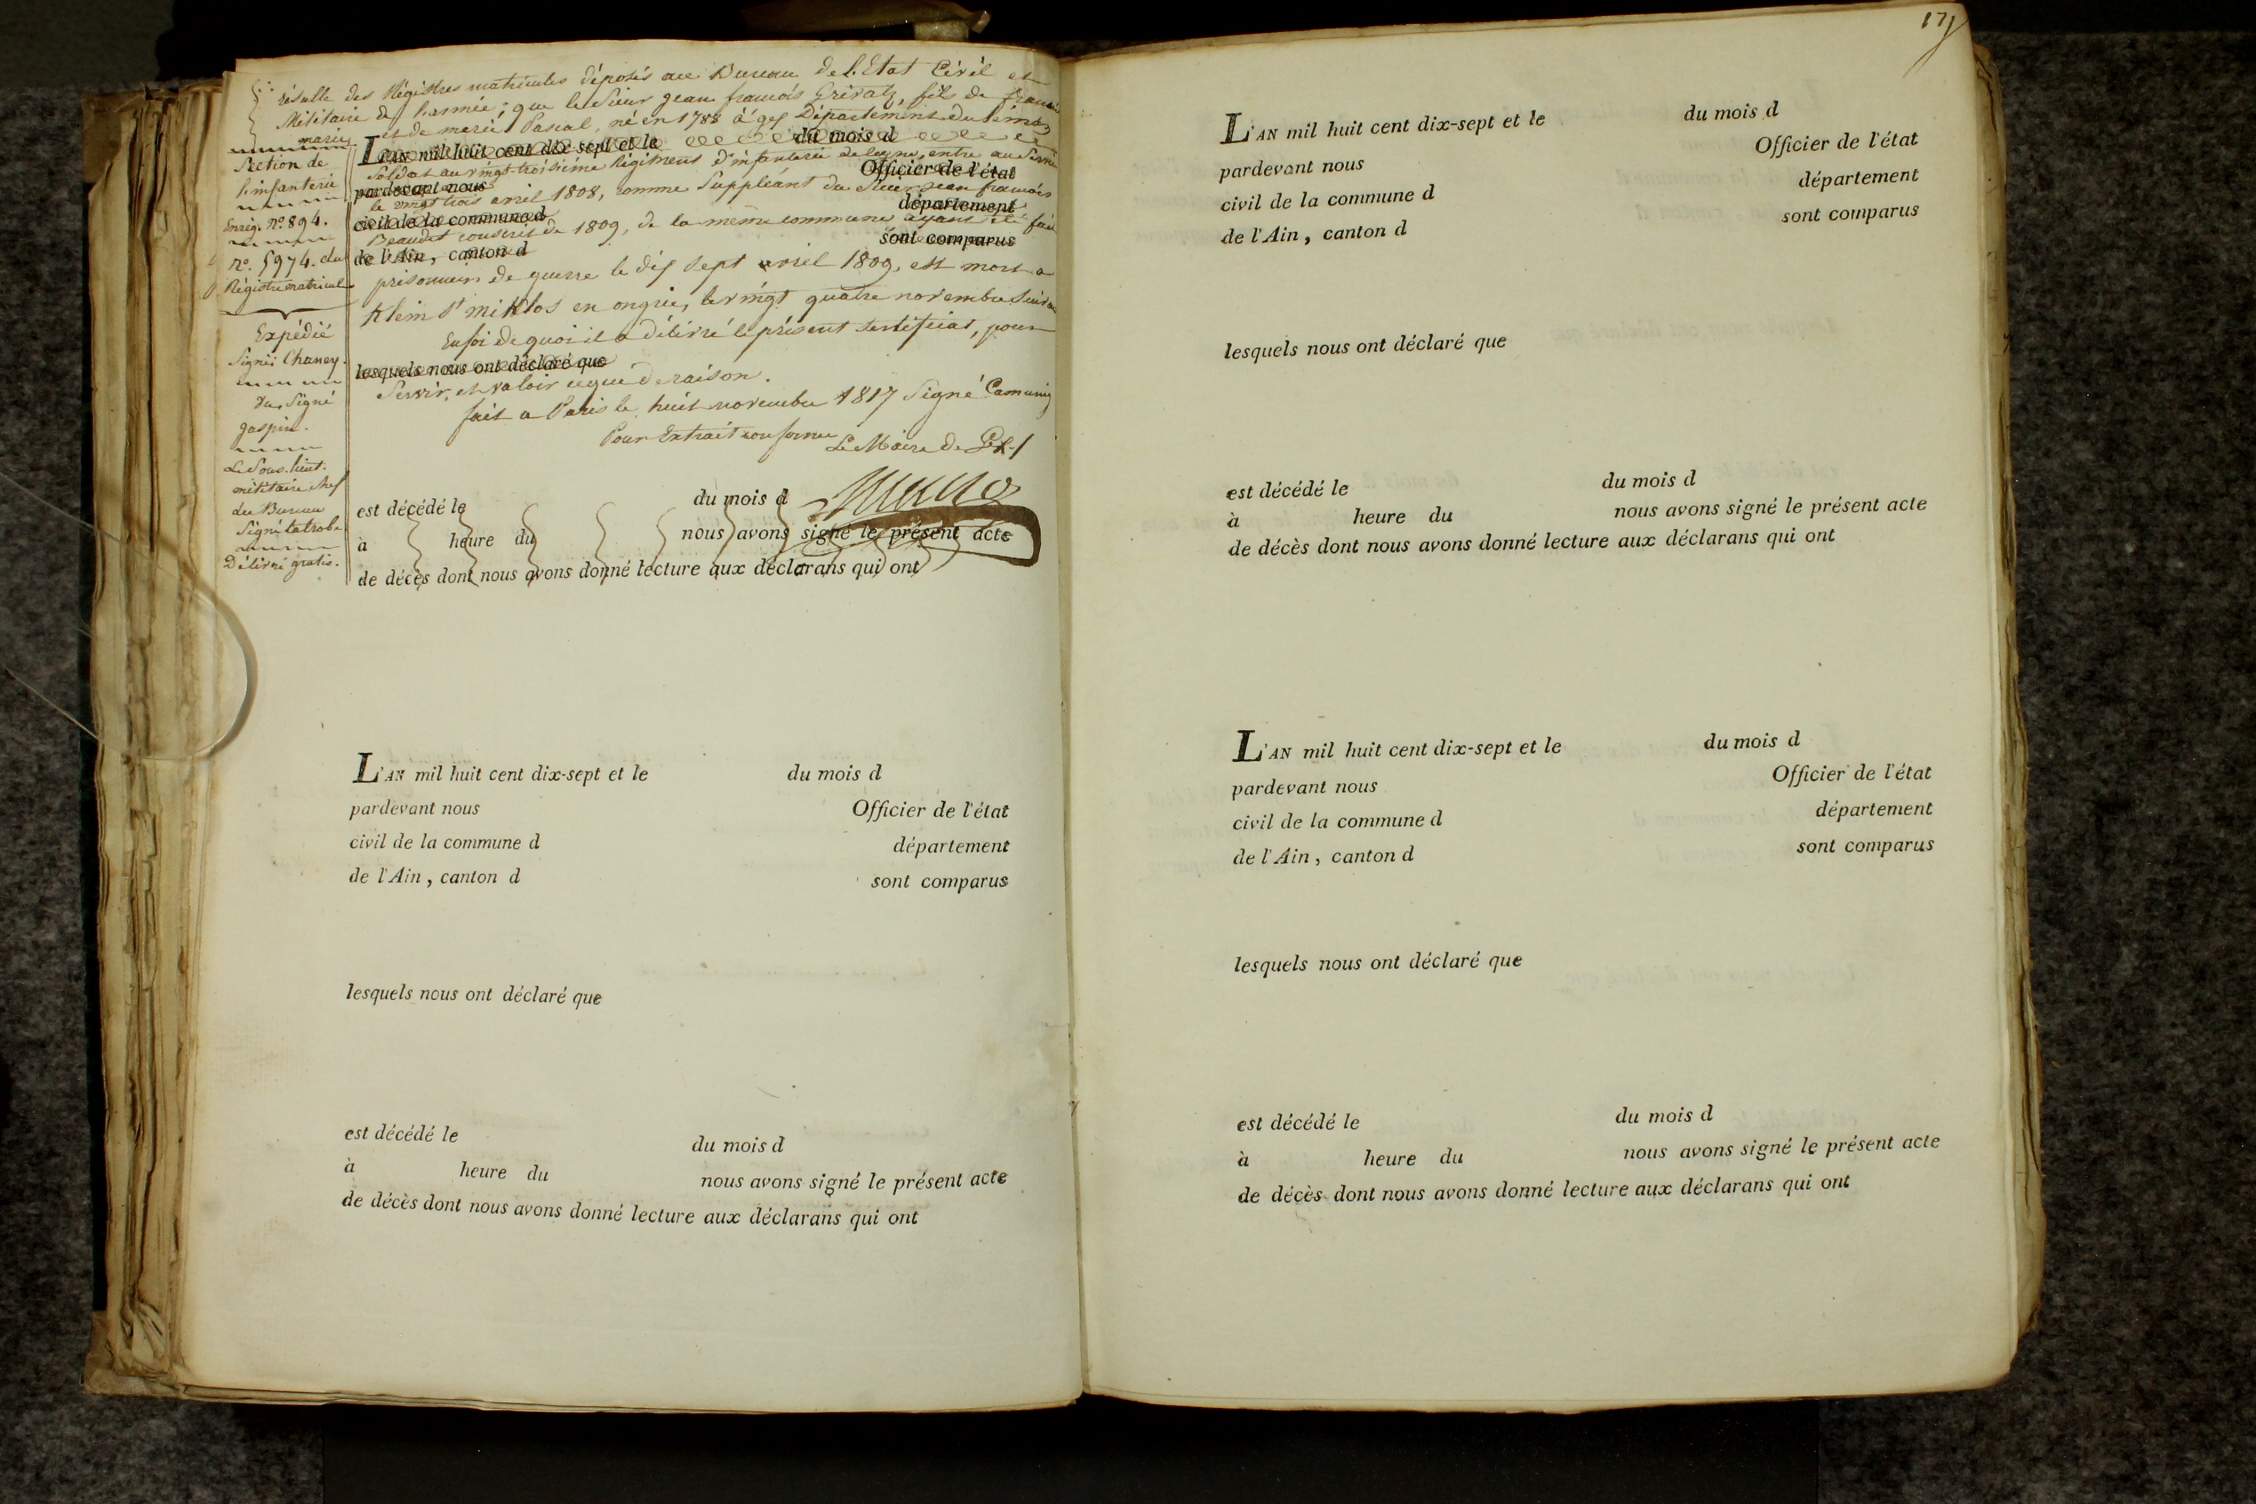 résulte des Régistres matricules déposés au Bureau de l'Etat Civil et
Militaire de l'armée; que le Sieur jean francois Grivatz, fils de francois
marie et de marie Pascal, né en 1788 à gex Département du Léman
L'AN mil huit cent dix-sept et le du mois d
Soldat au vingt troisième Régiment d'infanterie de ligne, entré au Service
pardevant nous Officier de l'état
le vingt trois avril 1808, comme Suppléant du Sieur jean francois
civil de la commune d département
Beaudet conscrit de 1809, de la même commune ayant été fait
de l'Ain, canton d sont comparus
prisonnier de guerre le dix sept avril 1809, est mort a
Klein St miklos en ongrie, le vingt quatre novembre Suivant
En foi de quoi il a délivré le présent Certificat, pour
lesquels nous ont déclaré que
Servir, et valoir ce que de raison.
fait a Paris le huit novembre 1817 Signé Camuning
Pour Extrait conforme
Le Maire de Gex
est décédé le du mois d
à heure du nous avons signé le présent acte
de décès dont nous avons donné lecture aux déclarans qui ont
Section de
l'infanterie
Enrég. no. 894.
no. 5974. du
Régistre matricul
Expédié
Signé: Chaney.
Vu, Signé
gaspin.
Le Sous. lieut.
militaire chef
du Bureau
Signé latrobe
Délivré gratis.
L'AN mil huit cent dix-sept et le du mois d
pardevant nous Officier de l'état
civil de la commune d département
de l'Ain, canton d sont comparus
lesquels nous ont déclaré que
est décédé le du mois d
à heure du nous avons signé le présent acte
de décès dont nous avons donné lecture aux déclarans qui ont
171
L'AN mil huit cent dix-sept et le du mois d
pardevant nous Officier de l'état
civil de la commune d département
de l'Ain, canton d sont comparus
lesquels nous ont déclaré que
est décédé le du mois d
à heure du nous avons signé le présent acte
de décès dont nous avons donné lecture aux déclarans qui ont
L'AN mil huit cent dix-sept et le du mois d
pardevant nous Officier de l'état
civil de la commune d département
de l'Ain, canton d sont comparus
lesquels nous ont déclaré que
est décédé le du mois d
à heure du nous avons signé le présent acte
de décès dont nous avons donné lecture aux déclarans qui ont